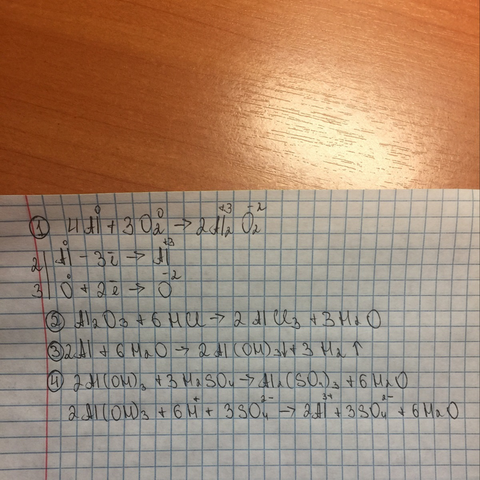 ① 4Al⁰ + 3O₂⁰ → 2Al₂⁺³O₂⁻²
2| Al⁰ - 3ē → Al⁺³
3| O⁰ + 2ē → O⁻²
② Al₂O₃ + 6HCl → 2AlCl₃ + 3H₂O
③ 2Al + 6H₂O → 2Al(OH)₃ + 3H₂↑
④ 2Al(OH)₃ + 3H₂SO₄ → Al₂(SO₄)₃ + 6H₂O
2Al(OH)₃ + 6H⁺ + 3SO₄²⁻ → 2Al³⁺ + 3SO₄²⁻ + 6H₂O